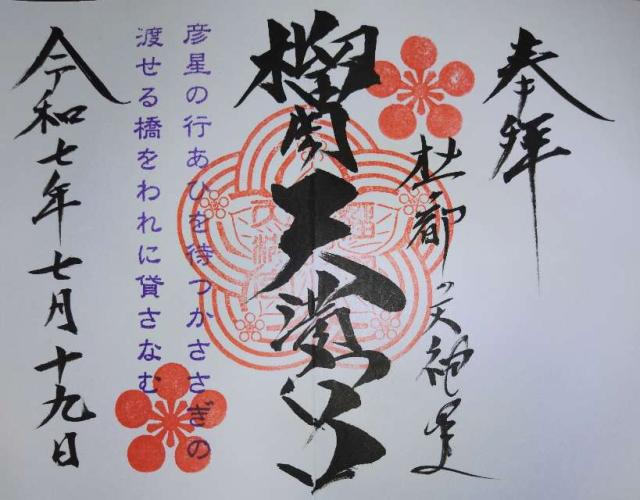 奉拝
杜都の天神
榴岡天満宮
彦星の行あひを待つかささぎの
渡せる橋をわれに貸さなむ
令和七年七月十九日